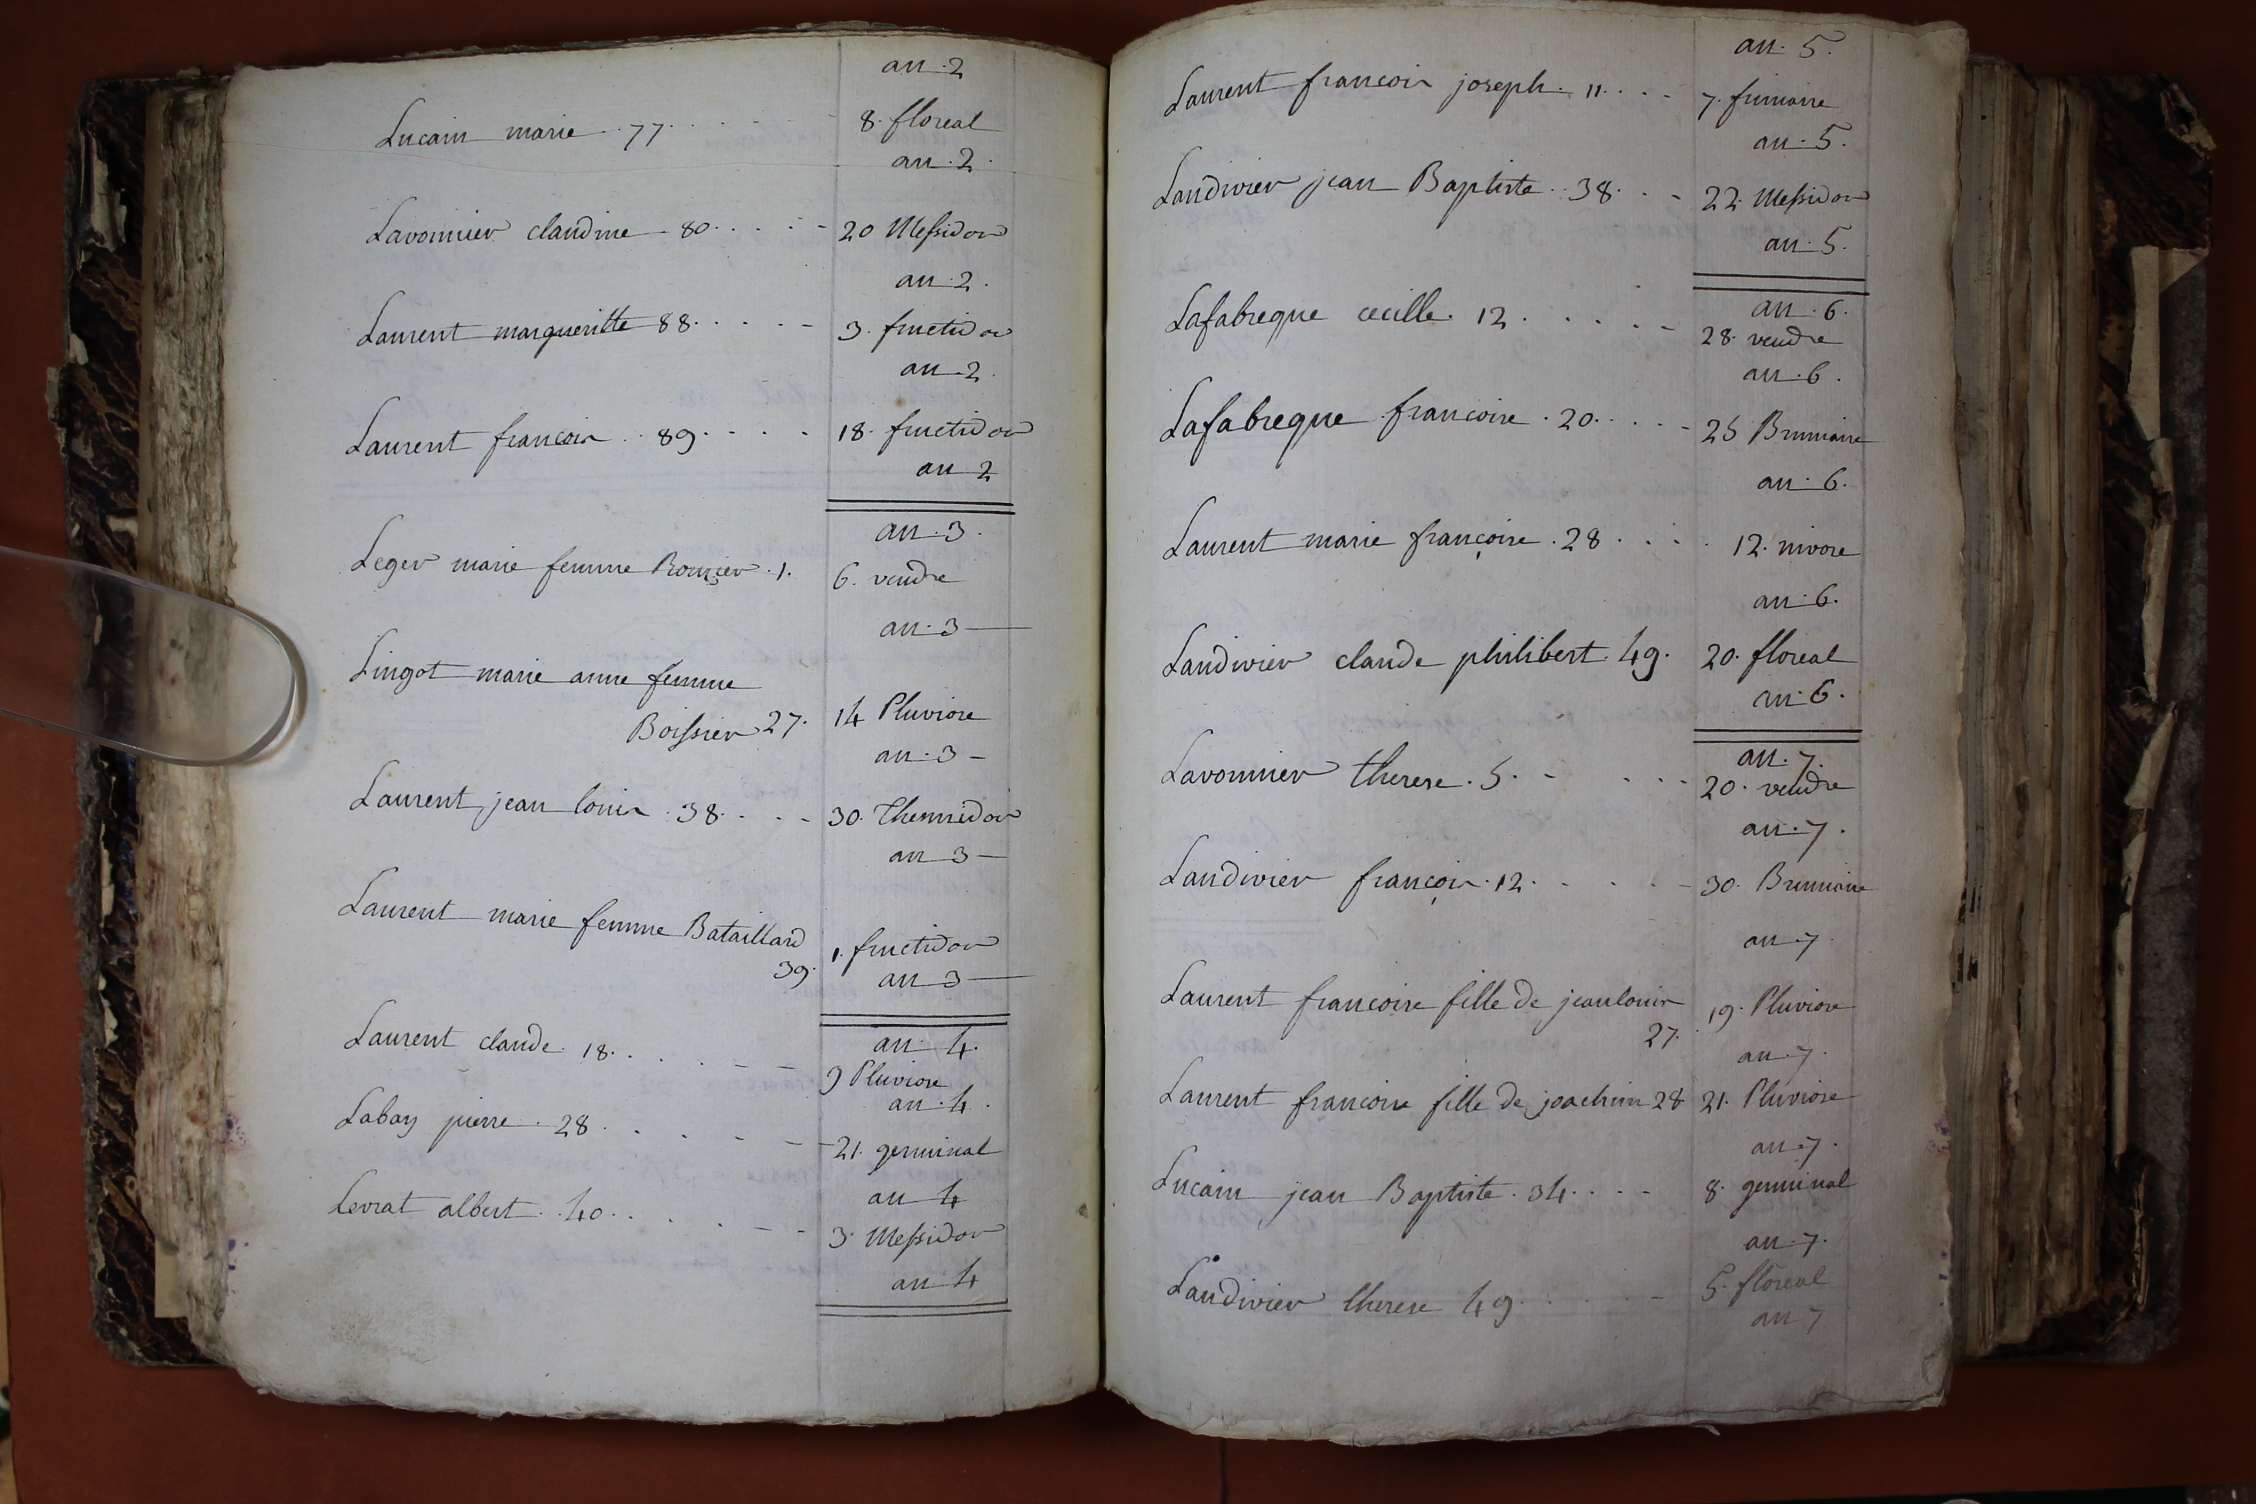 an . 2
Lucain marie . 77 . . . . . 8. floreal
an . 2 .
Lavonnier claudine - 80 . . . . 20 Messidor
an . 2 .
Laurent margueritte 88 . . . . 3. fructidor
an . 2 .
Laurent francois . . 89 . . . . 18. fructidor
an 2
an . 3 .
Leger marie femme . 1. 6. vendre
an . 3
Lingot marie anne femme
Boissier 27. 14 Pluviose
an . 3
Laurent jean louis . 38 . . . 30. Thermidor
an 3
Laurent marie femme Bataillard
39. 1. fructidor
an 3
an . 4.
Laurent claude . 18 . . . . 9 Pluviose
an . 4 .
Labay pierre . 28 . . . . 21. germinal
an 4
Levrat albert . 40 . . . . 3. Messidor
an 4
an . 5.
Laurent francois joseph . 11 . . . 7. frimaire
an . 5.
Landivier jean Baptiste . . 38 . . 22. Messidor
an . 5.
an . 6.
Lafabregue cecille . 12 . . . . . 28. vendre
an . 6 .
Lafabregue francoise . 20 . . . . 25 Brumaire
an . 6.
Laurent marie françoise . 28 . . . . 12. nivose
an . 6.
Landivier claude philibert . 49. 20. floreal
an . 6 .
an . 7.
Lavonnier therese . 5 . . . . 20. vendre
an . 7 .
Landivier françois . 12 . . . . 30. Brumaire
an 7
Laurent francoise fille de jean louis
27. 19. Pluviose
an . 7 .
Laurent francoise fille de joachim 28 21. Pluviose
an . 7 .
Lucain jean Baptiste . 34 . . . 8. germinal
an . 7 .
Landivier therese 49 . . . . 5. floreal
an 7